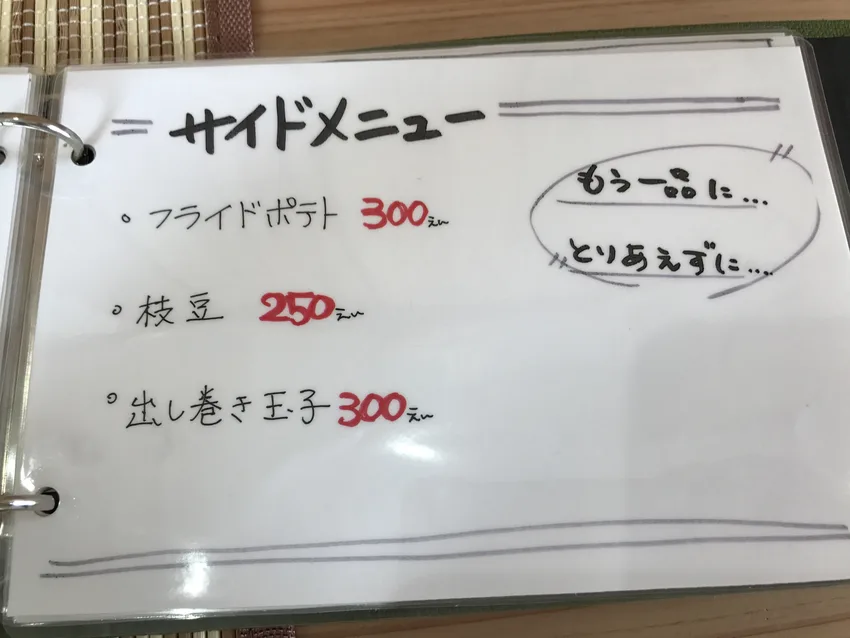 サイドメニュー
もう一品に...
とりあえずに....
。フライドポテト 300えん
。枝豆 250えん
。出し巻き玉子 300えん